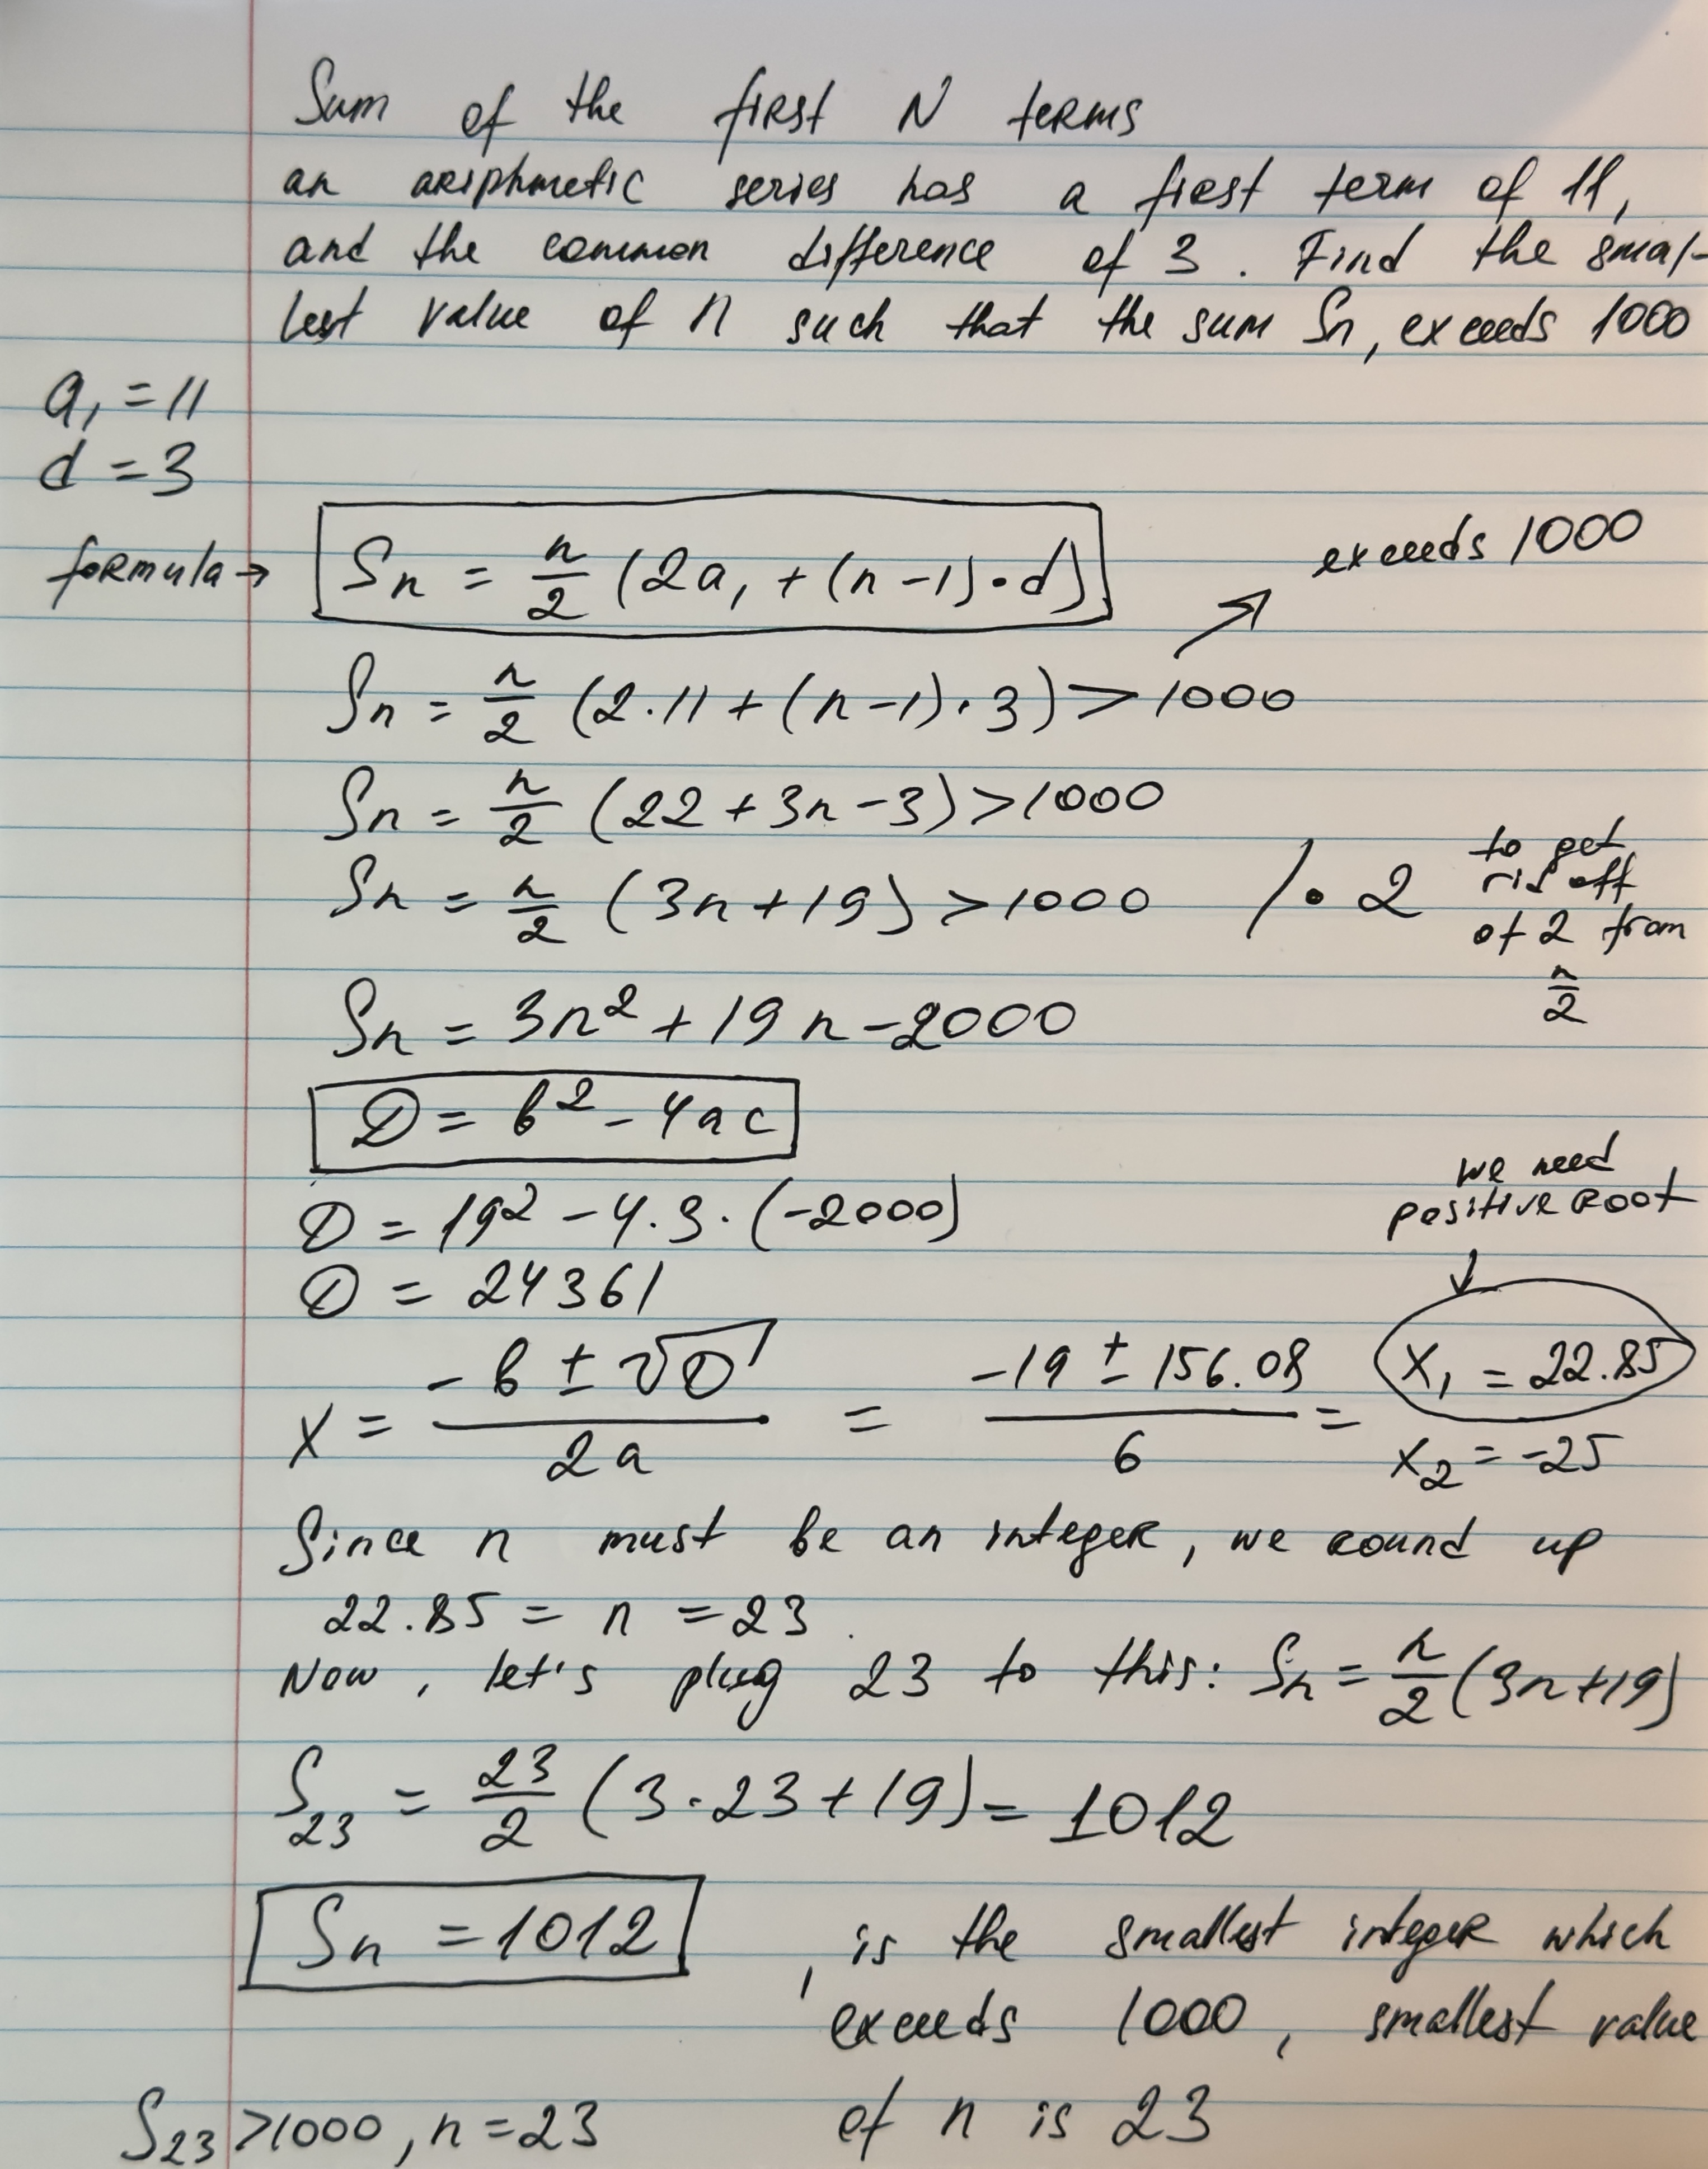 Sum of the first N terms
an ariphmetic series has a first term of 11,
and the common difference of 3. Find the smal-
lest value of n such that the sum Sn, exceeds 1000
a₁ = 11
d = 3
formula → Sn = n/2 (2a₁ + (n-1)·d)
exceeds 1000
Sn = n/2 (2·11 + (n-1)·3) > 1000
Sn = n/2 (22 + 3n - 3) > 1000
Sn = n/2 (3n + 19) > 1000 /·2
to get
rid off
of 2 from
n/2
Sn = 3n² + 19n - 2000
D = b² - 4ac
D = 19² - 4·3·(-2000)
D = 24361
we need
positive root
↓
x = (-b ± √D)/2a = (-19 ± 156.08)/6 = x₁ = 22.85
x₂ = -25
Since n must be an integer, we round up
22.85 = n = 23.
Now, let's plug 23 to this: Sn = n/2 (3n+19)
S₂₃ = 23/2 (3·23 + 19) = 1012
Sn = 1012, is the smallest integer which
exceeds 1000, smallest value
of n is 23
S₂₃ > 1000, n = 23